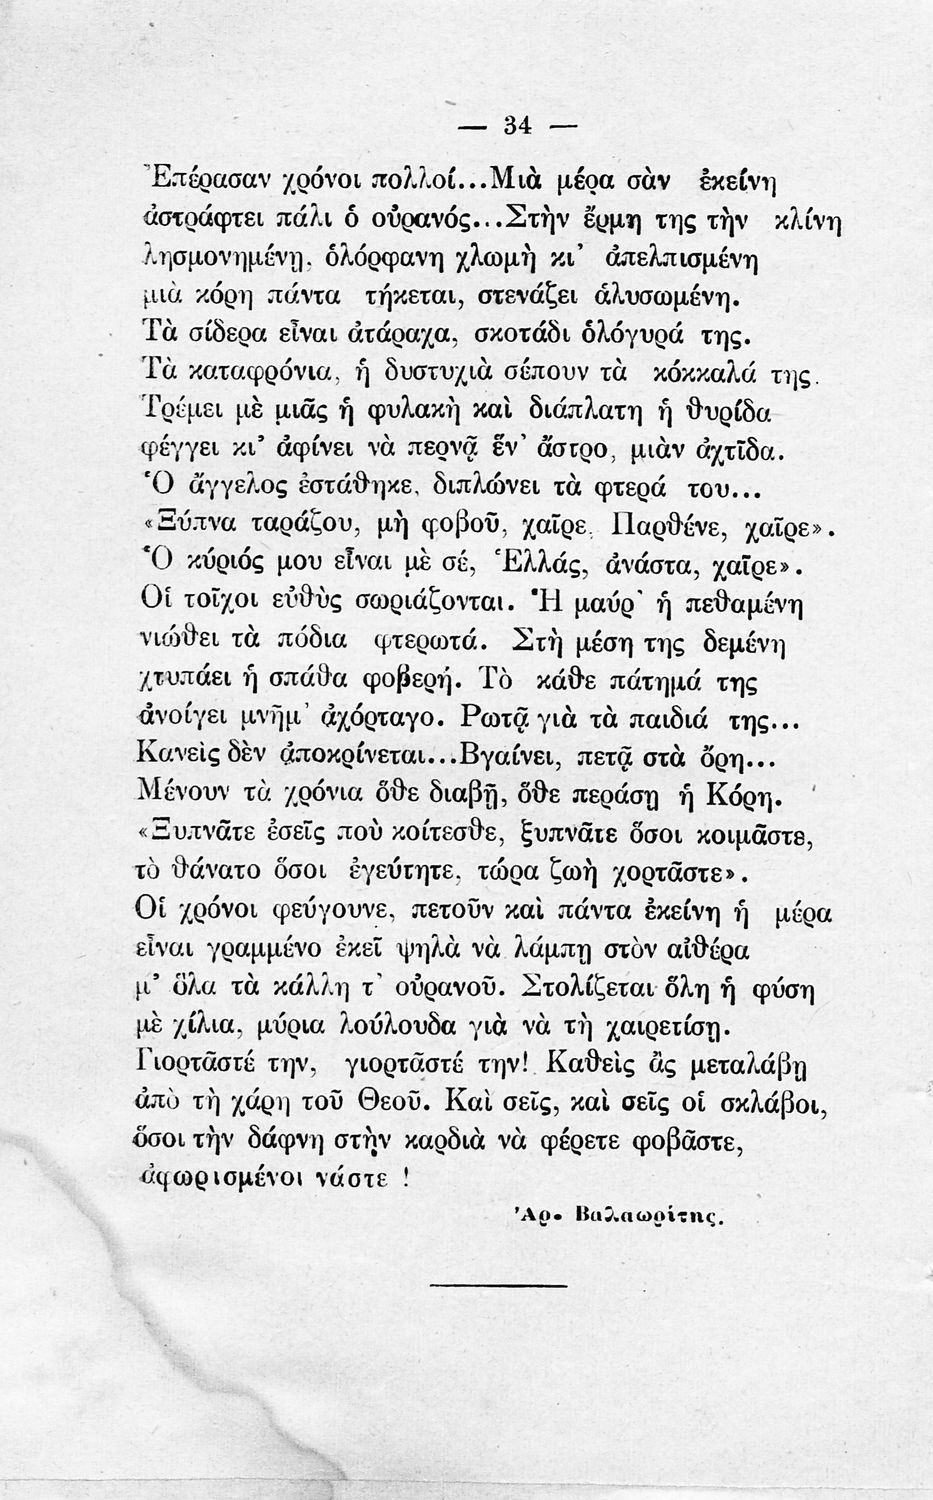 — 34 —
Ἐπέρασαν χρόνοι πολλοί...Μιὰ μέρα σὰν ἐκείνη
ἀστράφτει πάλι ὁ οὐρανός...Στὴν ἔρμη της τὴν κλίνη
λησμονημένη, ὁλόρφανη χλωμὴ κι' ἀπελπισμένη
μιὰ κόρη πάντα τήκεται, στενάζει ἁλυσωμένη.
Τὰ σίδερα εἶναι ἀτάραχα, σκοτάδι ὁλόγυρά της.
Τὰ καταφρόνια, ἡ δυστυχιὰ σέπουν τὰ κόκκαλά της.
Τρέμει μὲ μιᾶς ἡ φυλακὴ καὶ διάπλατη ἡ θυρίδα
φέγγει κι' ἀφίνει νὰ περνᾷ ἕν' ἄστρο, μιὰν ἀχτῖδα.
Ὁ ἄγγελος ἐστάθηκε, διπλώνει τὰ φτερά του...
«Ξύπνα ταράζου, μὴ φοβοῦ, χαῖρε, Παρθένε, χαῖρε».
Ὁ κύριός μου εἶναι μὲ σέ, Ἑλλάς, ἀνάστα, χαῖρε».
Οἱ τοῖχοι εὐθὺς σωριάζονται. Ἡ μαύρ' ἡ πεθαμένη
νιώθει τὰ πόδια φτερωτά. Στὴ μέση της δεμένη
χτυπάει ἡ σπάθα φοβερή. Τὸ κάθε πάτημά της
ἀνοίγει μνῆμ' ἀχόρταγο. Ρωτᾷ γιὰ τὰ παιδιά της...
Κανεὶς δὲν ἀποκρίνεται...Βγαίνει, πετᾷ στὰ ὄρη...
Μένουν τὰ χρόνια ὅθε διαβῇ, ὅθε περάσῃ ἡ Κόρη.
«Ξυπνᾶτε ἐσεῖς ποὺ κοίτεσθε, ξυπνᾶτε ὅσοι κοιμᾶστε,
τὸ θάνατο ὅσοι ἐγεύτητε, τώρα ζωὴ χορτᾶστε».
Οἱ χρόνοι φεύγουνε, πετοῦν καὶ πάντα ἐκείνη ἡ μέρα
εἶναι γραμμένο ἐκεῖ ψηλὰ νὰ λάμπῃ στὸν αἰθέρα
μ' ὅλα τὰ κάλλη τ' οὐρανοῦ. Στολίζεται ὅλη ἡ φύση
μὲ χίλια, μύρια λούλουδα γιὰ νὰ τὴ χαιρετίσῃ.
Γιορτᾶστέ την, γιορτᾶστέ την! Καθεὶς ἂς μεταλάβῃ
ἀπὸ τὴ χάρη τοῦ Θεοῦ. Καὶ σεῖς, καὶ σεῖς οἱ σκλάβοι,
ὅσοι τὴν δάφνη στὴν καρδιὰ νὰ φέρετε φοβᾶστε,
ἀφωρισμένοι νάστε !
Ἀρ. Βαλαωρίτης.